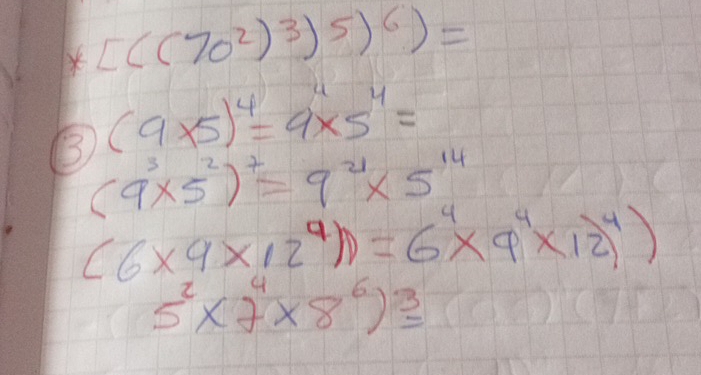 * [((70²)³)⁵)⁶) =
③ (9×5)⁴ = 9⁴×5⁴ =
(9³×5²)⁷ = 9²¹ × 5¹⁴
(6×9×12⁹)) = 6⁴×9⁴×12)⁴)
5²×7⁴×8⁶)³ =